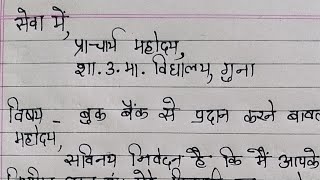 सेवा में,
प्राचार्य महोदय,
शा. उ. मा. विद्यालय, गुना
विषय - बुक बैंक से प्रदान करने बाबत
महोदय,
सविनय निवेदन है कि मैं आपके